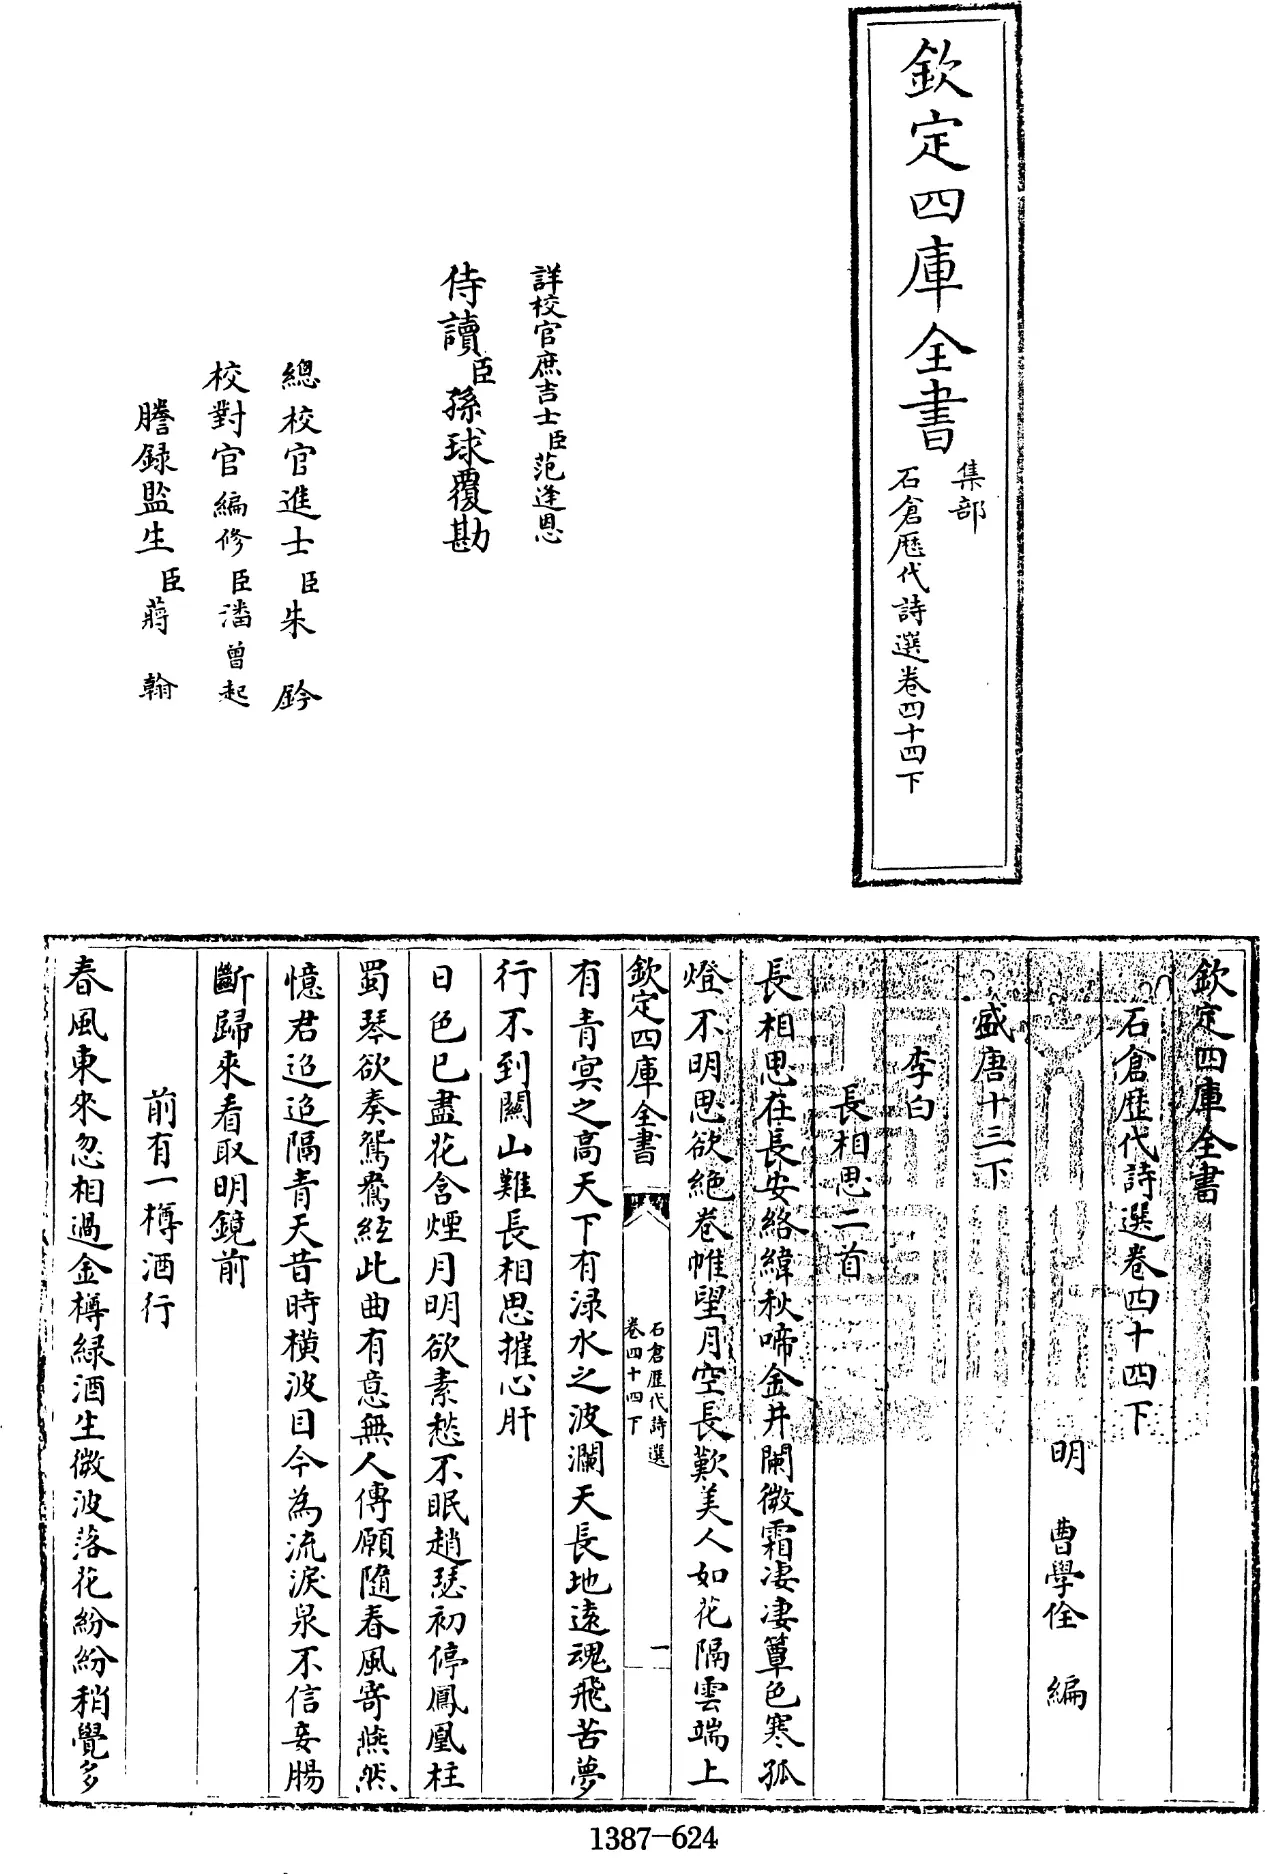 欽定四庫全書
集部
石倉歷代詩選卷四十四下
詳校官庶吉士臣范逢恩
侍讀臣孫球覆勘
總校官進士臣朱鈐
校對官編修臣潘曾起
謄録監生臣蔣翰
欽定四庫全書
石倉歷代詩選卷四十四下
明 曹學佺 編
盛唐十三下
李白
長相思二首
長相思在長安絡緯秋啼金井闌微霜凄凄簟色寒孤
燈不明思欲絶卷帷望月空長歎美人如花隔雲端上
欽定四庫全書
石倉歷代詩選
卷四十四下
一
有青冥之高天下有渌水之波瀾天長地遠魂飛苦夢
行不到關山難長相思摧心肝
日色已盡花含煙月明欲素愁不眠趙瑟初停鳳凰柱
蜀琴欲奏鴛鴦絃此曲有意無人傳願隨春風寄燕然
憶君迢迢隔青天昔時横波目今為流淚泉不信妾腸
斷歸來看取明鏡前
前有一樽酒行
春風東來忽相過金樽緑酒生微波落花紛紛稍覺多
1387-624